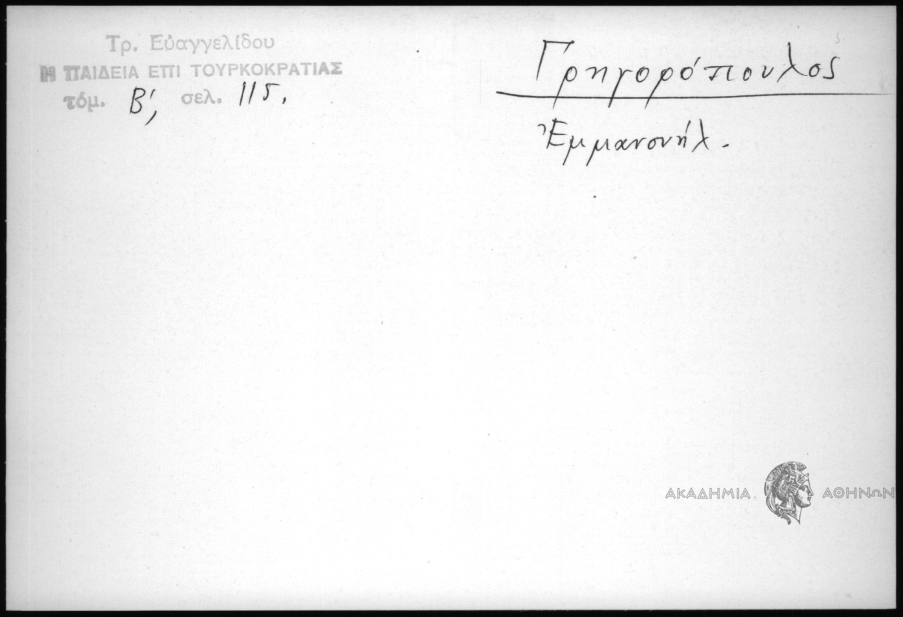 Τρ. Εὐαγγελίδου
Η ΠΑΙΔΕΙΑ ΕΠΙ ΤΟΥΡΚΟΚΡΑΤΙΑΣ
τόμ. Β', σελ. 115.
Γρηγορόπουλος
Ἐμμανουήλ.
ΑΚΑΔΗΜΙΑ ΑΘΗΝΩΝ